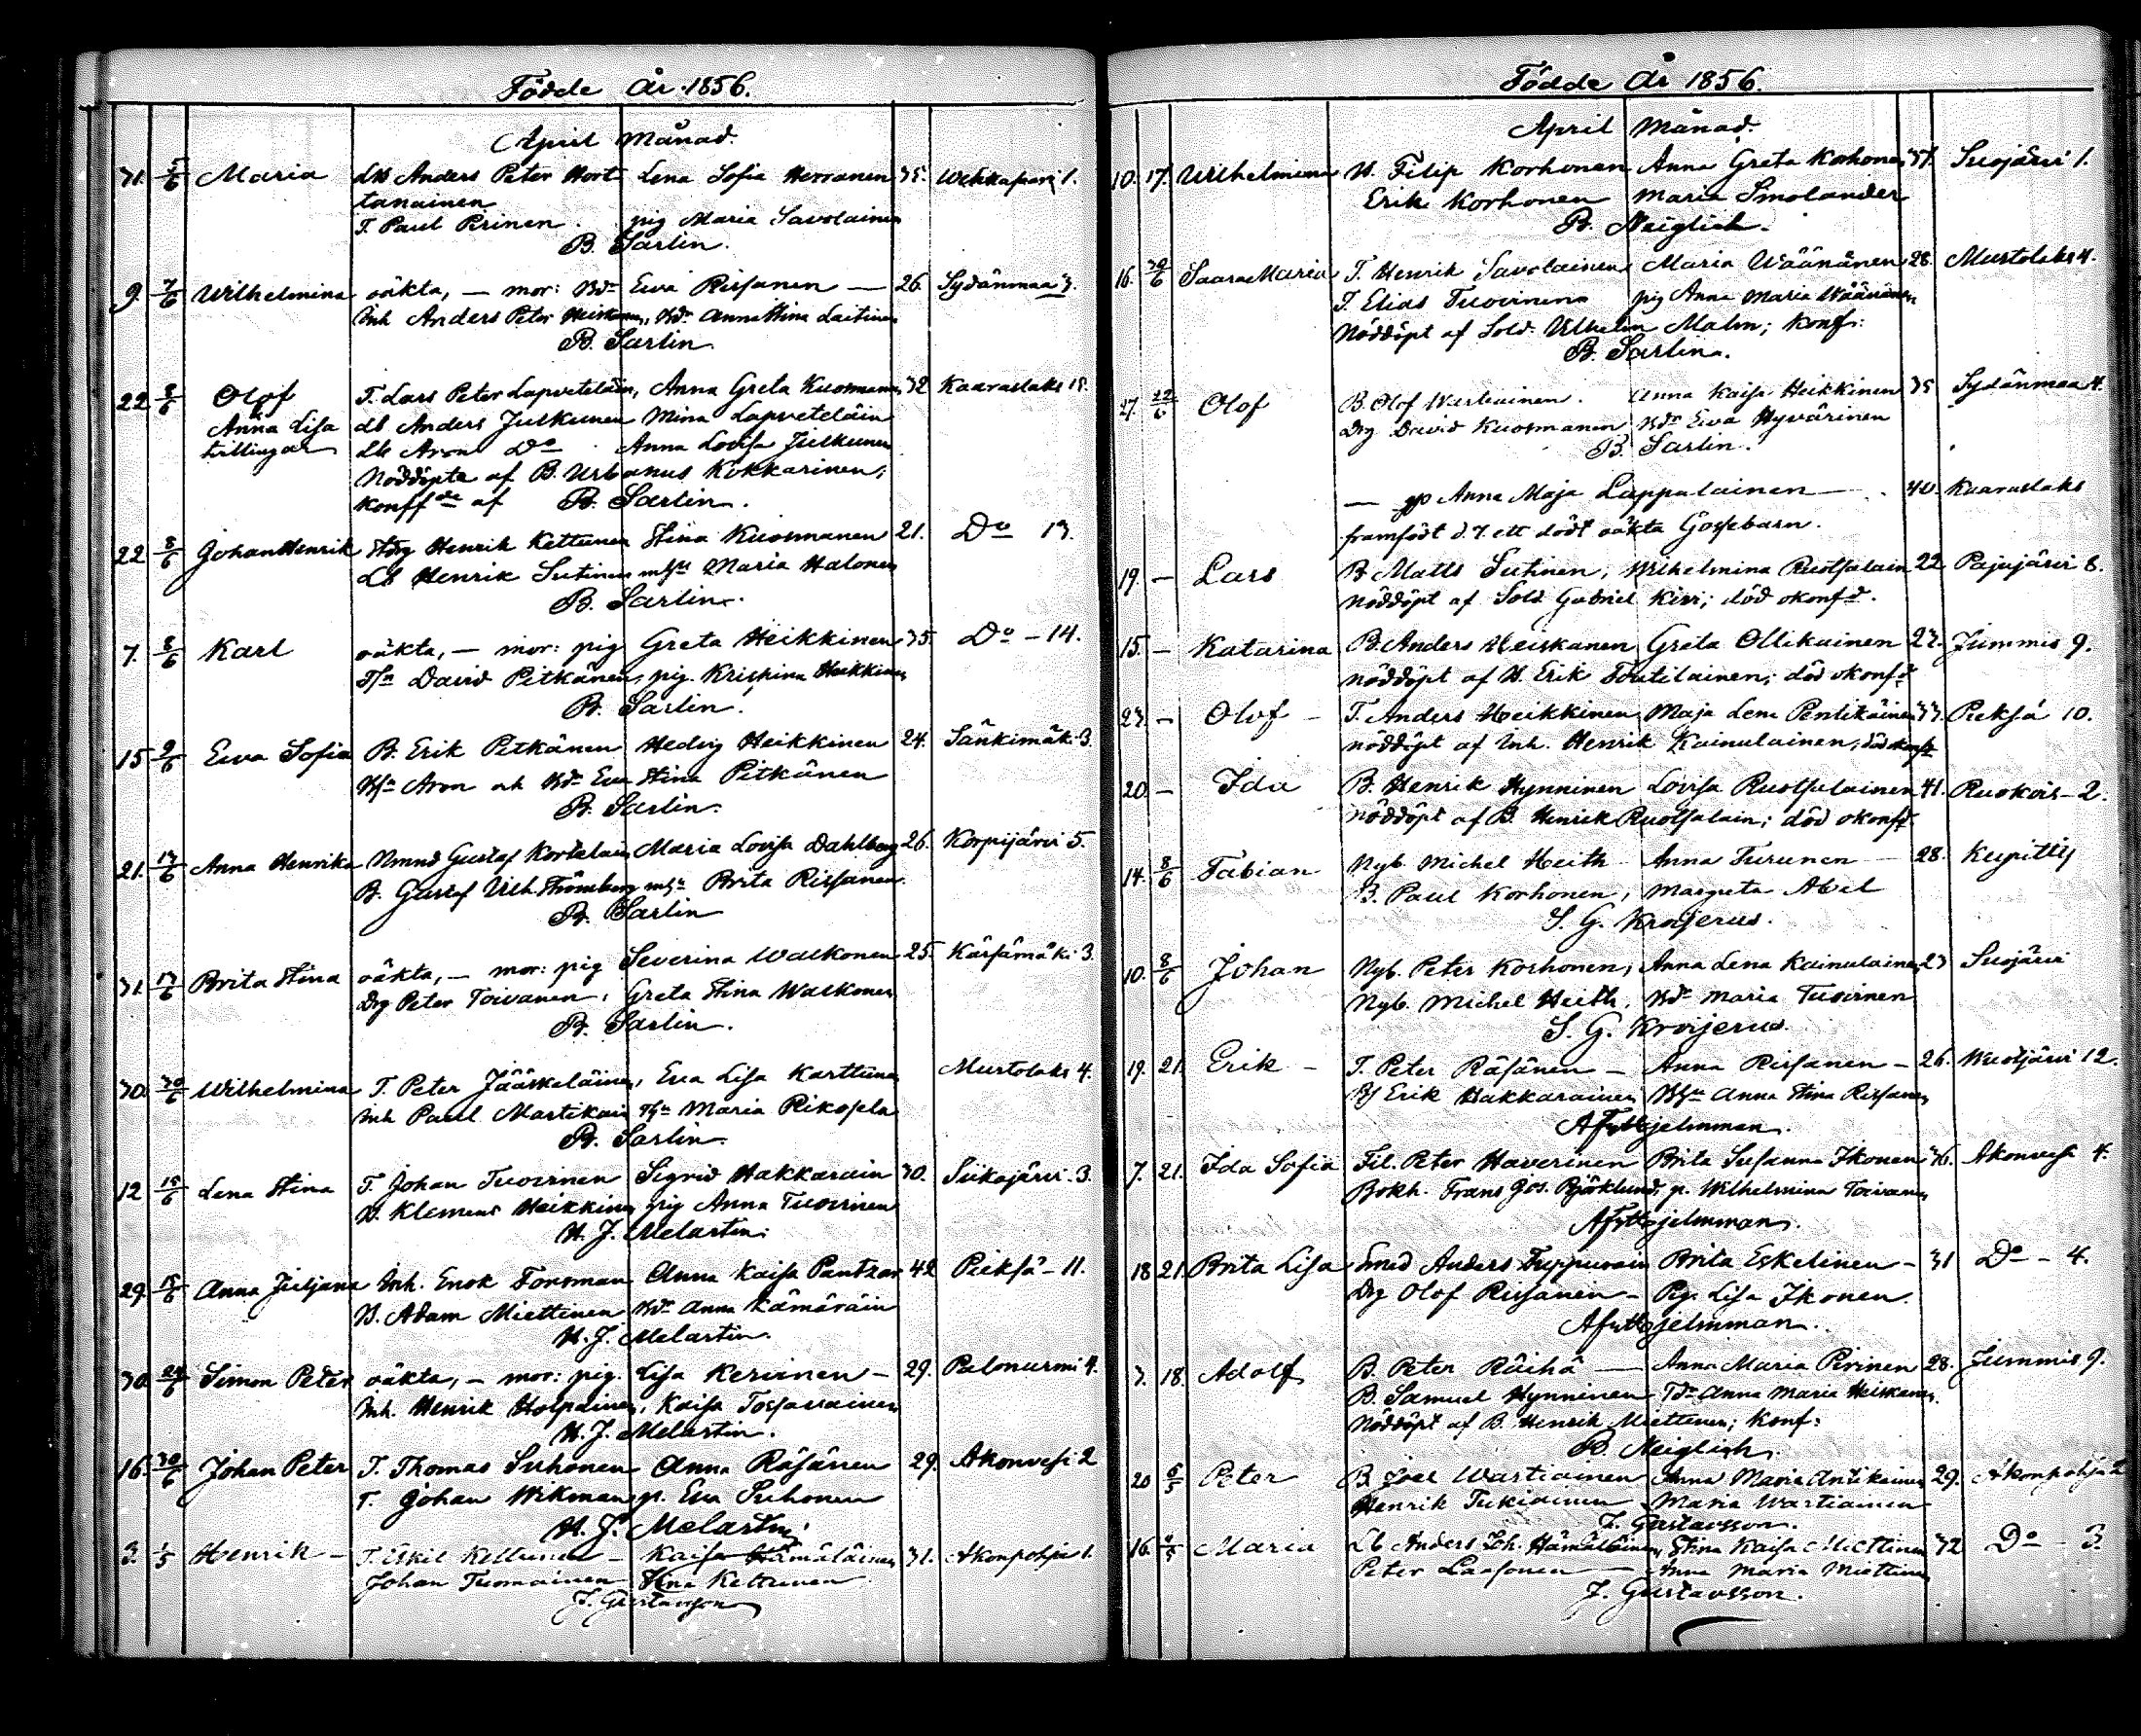 Födde År 1856.
April Månad.
31. 5/6 Maria Anders Peter Hort Lena Sofia Herranen 35. 1.
tanainen
T. Paul Pirinen. pig Maria Savolainen
B. Sarlin.
9. 7/6 Wilhelmina oäkta, — mor: Eva Rissanen — 26. Sydänmaa 3.
Inh Anders Peter Anna Stina Laitinen
B. Sarlin
22 8/6 Olof T. Lars Peter Lapveteläin, Anna Greta Kuosmanen 32 Kaavaslaks 18.
Anna Lisa Anders Julkunen Mina Lapveteläin
tvillingar Aron Do Anna Lovisa Julkunen
Nöddöpte af B. Urbanus Kokkarinen;
af B. Sarlin.
22 8/6 Johan Henrik Henrik Kettunen Stina Kuosmanen 21. Do 13.
Henrik Sutinen Maria Halonen
B. Sarlin.
7. 8/6 Karl oäkta, — mor: pig Greta Heikkinen 35. Do - 14.
David Pitkänen, pig. Kristina Heikkinen
B. Sarlin.
15 9/6 Eva Sofia B. Erik Pitkänen Hedvig Heikkinen 24. Sänkimäki 3.
Aron och Eva Stina Pitkänen
B. Sarlin.
21. Anna Henrika Gustaf Kortelain Maria Lovisa Dahlberg 26. Korpijärvi 5.
B. Gustaf Vilh. Brita Rissanen.
B. Sarlin
31. 17/6 Brita Stina oäkta, — mor: pig Severina Walkonen 25. Kärsämäki 3.
Drg Peter Toivanen, Greta Stina Walkonen
B. Sarlin.
30. 30/6 Wilhelmina T. Peter Jääskeläinen, Eva Lisa Karttunen Murtolaks 4.
Inh Paul Martikain Maria
B. Sarlin
12 15/6 Lena Stina T. Johan Tuovinen Sigrid Hakkarain 30. Siikajärvi. 3.
Klemens Heikkinen pig Anna Tuovinen
H. J. Melartin.
29. 15/6 Anna Juljana Inh. Enok Forsman Anna Kaisa Pantzar 42 Pieksä - 11.
Adam Miettinen Anna Kämäräin
H. J. Melartin.
30. 24/6 Simon Peter oäkta, — mor: pig. Lisa Kervinen — 29. Palonurmi 4.
Inh. Henrik Holpainen, Kaisa
H. J. Melartin.
16. 30/6 Johan Peter T. Thomas Suhonen Anna Räsänen 29. Akonvesi 2
T. Johan Wikman p. Eva Suhonen
H. J. Melartin
3. 1/5 Henrik — T. Eskil Kettunen — Kaisa Hämäläinen 31. Akonpohja 1.
Johan Tuomainen Stina Kettunen
J. Gustavsson
Födde År 1856.
April Månad.
10. 17. Wilhelmina Filip Korhonen Anna Greta Korhonen 37. Suojärvi 1.
Erik Korhonen Maria Smolander
B. Neiglick.
16. 30/6 Saara Maria T. Henrik Savolainen Maria Väänänen 28. Murtolaks 4.
T. Elias Tuovinen pig Anna Maria Väänänen
Nöddöpt af Sold. Vilhelm Malm; konf:
B. Sarlin.
27. 22/6 Olof B. Olof Wartiainen. Anna Kaisa Heikkinen 35 Sydänmaa 4.
Drg David Kuosmanen Eva Hyvärinen
B. Sarlin.
— Anna Maja Lappalainen — 40. Kaavaslaks
framfödt d. 7. ett dödt oäkta Gossebarn.
19. — Lars B. Matts Sutinen, Wilhelmina Ruotsalain 22 Pajujärvi 8.
nöddöpt af Sold. Gabriel död okonf.
15. — Katarina B. Anders Heiskanen Greta Ollikainen 27. Jummis 9.
nöddöpt af Erik död okonf
23. — Olof — T. Anders Heikkinen Maja Lena Pentikäinen 33. Pieksä 10.
nöddöpt af Inh. Henrik Kainulainen, död okonf
20. — Ida B. Henrik Hynninen Lovisa Ruotsalainen 41. 2.
nöddöpt af B. Henrik Ruotsalain; död okonf.
14. 8/6 Fabian Nyb. Michel Heith Anna Turunen — 28. Kupitty
B. Paul Korhonen, Margreta Abel
S. G. Krojerus.
10. 8/6 Johan Nyb. Peter Korhonen, Anna Lena Kainulainen 23 Suojärvi
Nyb. Michel Heith, Maria Tuovinen
S. G. Krojerus.
19. 21. Erik — T. Peter Räsänen — Anna Rissanen — 26. 12.
Erik Hakkarainen Anna Stina Rissanen
7. 21. Ida Sofia Peter Haverinen Brita Susanna Ikonen 36. Akonvesi 4.
Bokh. Frans Jos. Björklund, p. Wilhelmina Toivanen
18 21. Brita Lisa Smed Anders Tuppurain Brita Eskelinen — 31 Do - 4.
Drg Olof Rissanen — Pig. Lisa Ikonen.
3. 18. Adolf B. Peter Räihä — Anna Maria Pirinen 28. Jummis 9.
B. Samuel Hynninen Anna Maria Heiskanen.
Nöddöpt af B. Henrik Miettinen; konf:
B. Neiglick.
20 Peter B Joel Wartiainen Anna Maria Antikainen 29. Akonpohja 2
Henrik Tukiainen Maria Wartiainen
J. Gustavsson.
16. Maria Anders Joh. Hämäläinen, Stina Kaisa Miettinen 32 Do - 3.
Peter Laasonen — Anna Maria Miettinen
J. Gustavsson.